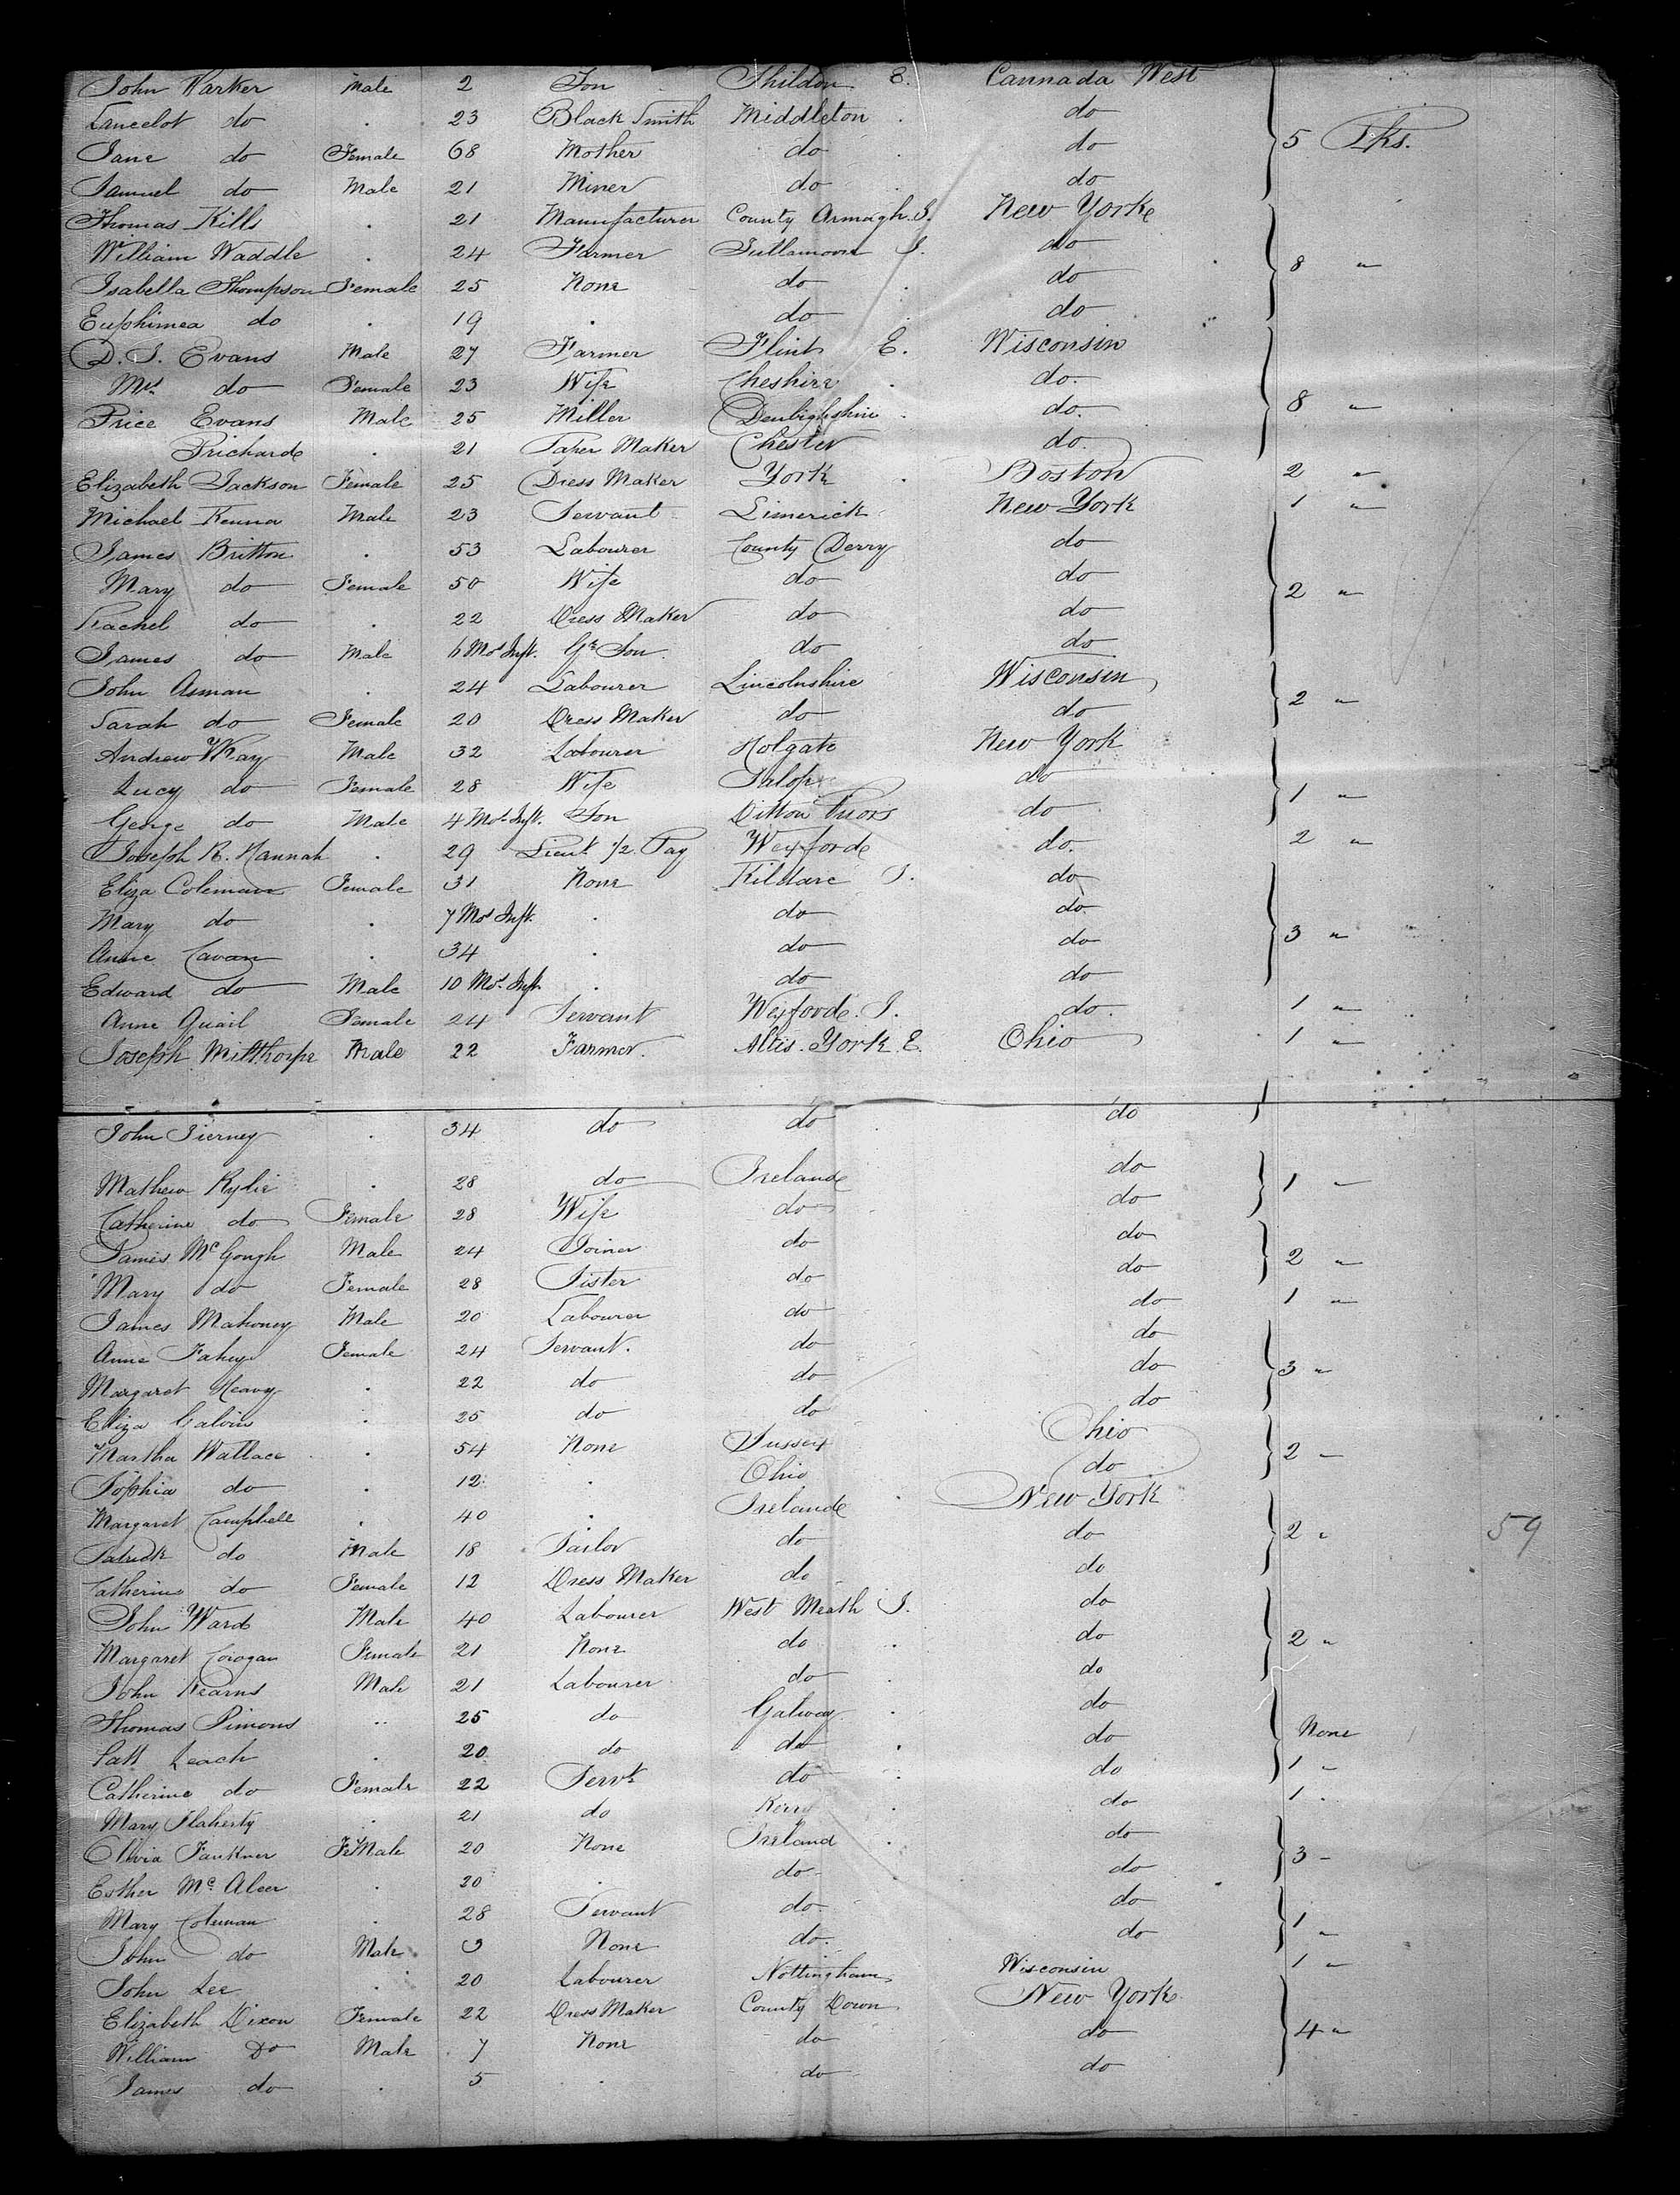 John Parker Male 2 Son Shildon E. Cannada West
Lancelot do . 23 Black Smith Middleton . do
Jane do Female 68 Mother do . do 5 Pks.
Samuel do Male 21 Miner do . do
Thomas Kills . 21 Manufacturer County Armagh I. New York
William Waddle . 24 Farmer Tullamoore I. do
Isabella Thompson Female 25 None do . do 8 "
Euphimea do . 19 . do do
D. J. Evans Male 27 Farmer Flint E. Wisconsin
Mrs do Female 23 Wife Cheshire . do.
Price Evans Male 25 Miller Denbighshire . do. 8 "
Prichard . 21 Paper Maker Chester do.
Elizabeth Jackson Female 25 Dress Maker York . Boston 2 "
Michael Kenna Male 23 Servant Limerick New York 1 "
James Britton . 53 Labourer County Derry do
Mary do Female 50 Wife do do 2 "
Rachel do . 22 Dress Maker do do
James do Male 6 Mos Inft. Gr Son do do
John Asman . 24 Labourer Lincolnshire Wisconsin
Sarah do Female 20 Dress Maker do do 2 "
Andrew Male 32 Labourer Holgate New York
Lucy do Female 28 Wife Salop do 1 "
George do Male 4 Mos Inft. Son Ditton Priors do
Joseph R. Hannah . 29 Lieut 1/2 Pay Wexford do. 2 "
Eliza Coleman Female 31 None Kildare I. do
Mary do . 7 Mos Inft. . do do.
Anne Cavan . 34 . do do 3 "
Edward do Male 10 Mos. Inft . do do
Anne Quail Female 24 Servant Wexford. I. do. 1 "
Joseph Milthorpe Male 22 Farmer. York E. Ohio 1 "
John Tierney . 34 do do . do
Mathew Rylie . 28 do Ireland do 1 "
Catherine do Female 28 Wife do do
James McGough Male 24 Joiner do do
Mary do Female 28 Sister do do 2 "
James Mahoney Male 20 Labourer do do 1 "
Anne Fahy Female 24 Servant. do do
Margaret Heavy . 22 do do do 3 "
Eliza Galvin . 25 do do do
Martha Wallace . 54 None Sussex Ohio 2 "
Sophia do . 12 . Ohio do
Margaret Campbell . 40 . Ireland . New York
Patrick do Male 18 Tailor do do 2 " 59
Catherine do Female 12 Dress Maker do do
John Ward Male 40 Labourer West Meath I. do
Margaret Female 21 None do . do 2 "
John Kearns Male 21 Labourer do do
Thomas Simons .. 25 do Galway . do None
Patt Leach . 20 do do . do
Catherine do Female 22 Servt do . do 1 "
Mary Flaherty . 21 do Kerry . do 1 .
Olivia Faukner FeMale 20 None Ireland . do 3 "
Esther Mc Aleer . 20 . do do
Mary Coleman . 28 Servant do. do 1 "
John do Male 3 None do. do
John Lee . 20 Labourer Nottingham Wisconsin 1 "
Elizabeth Dixon Female 22 Dress Maker County Down New York
William Do Male 7 None do do 4 "
James do . 5 . do do